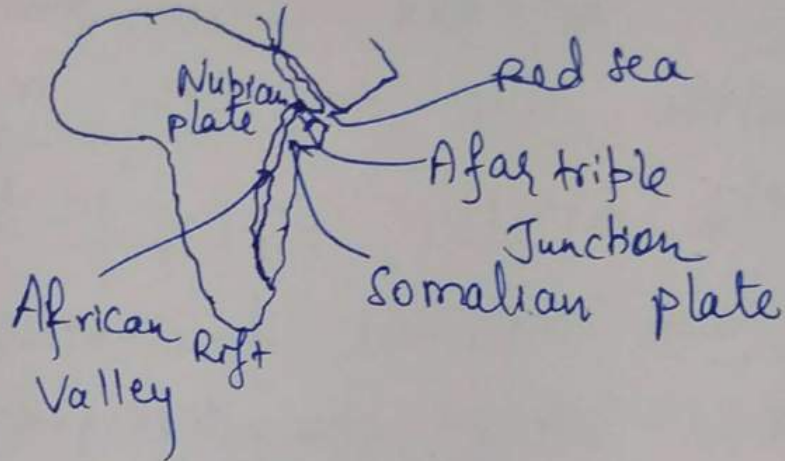 Nubian
plate
Red Sea
Afar triple
Junction
Somalian plate
African Rift
Valley